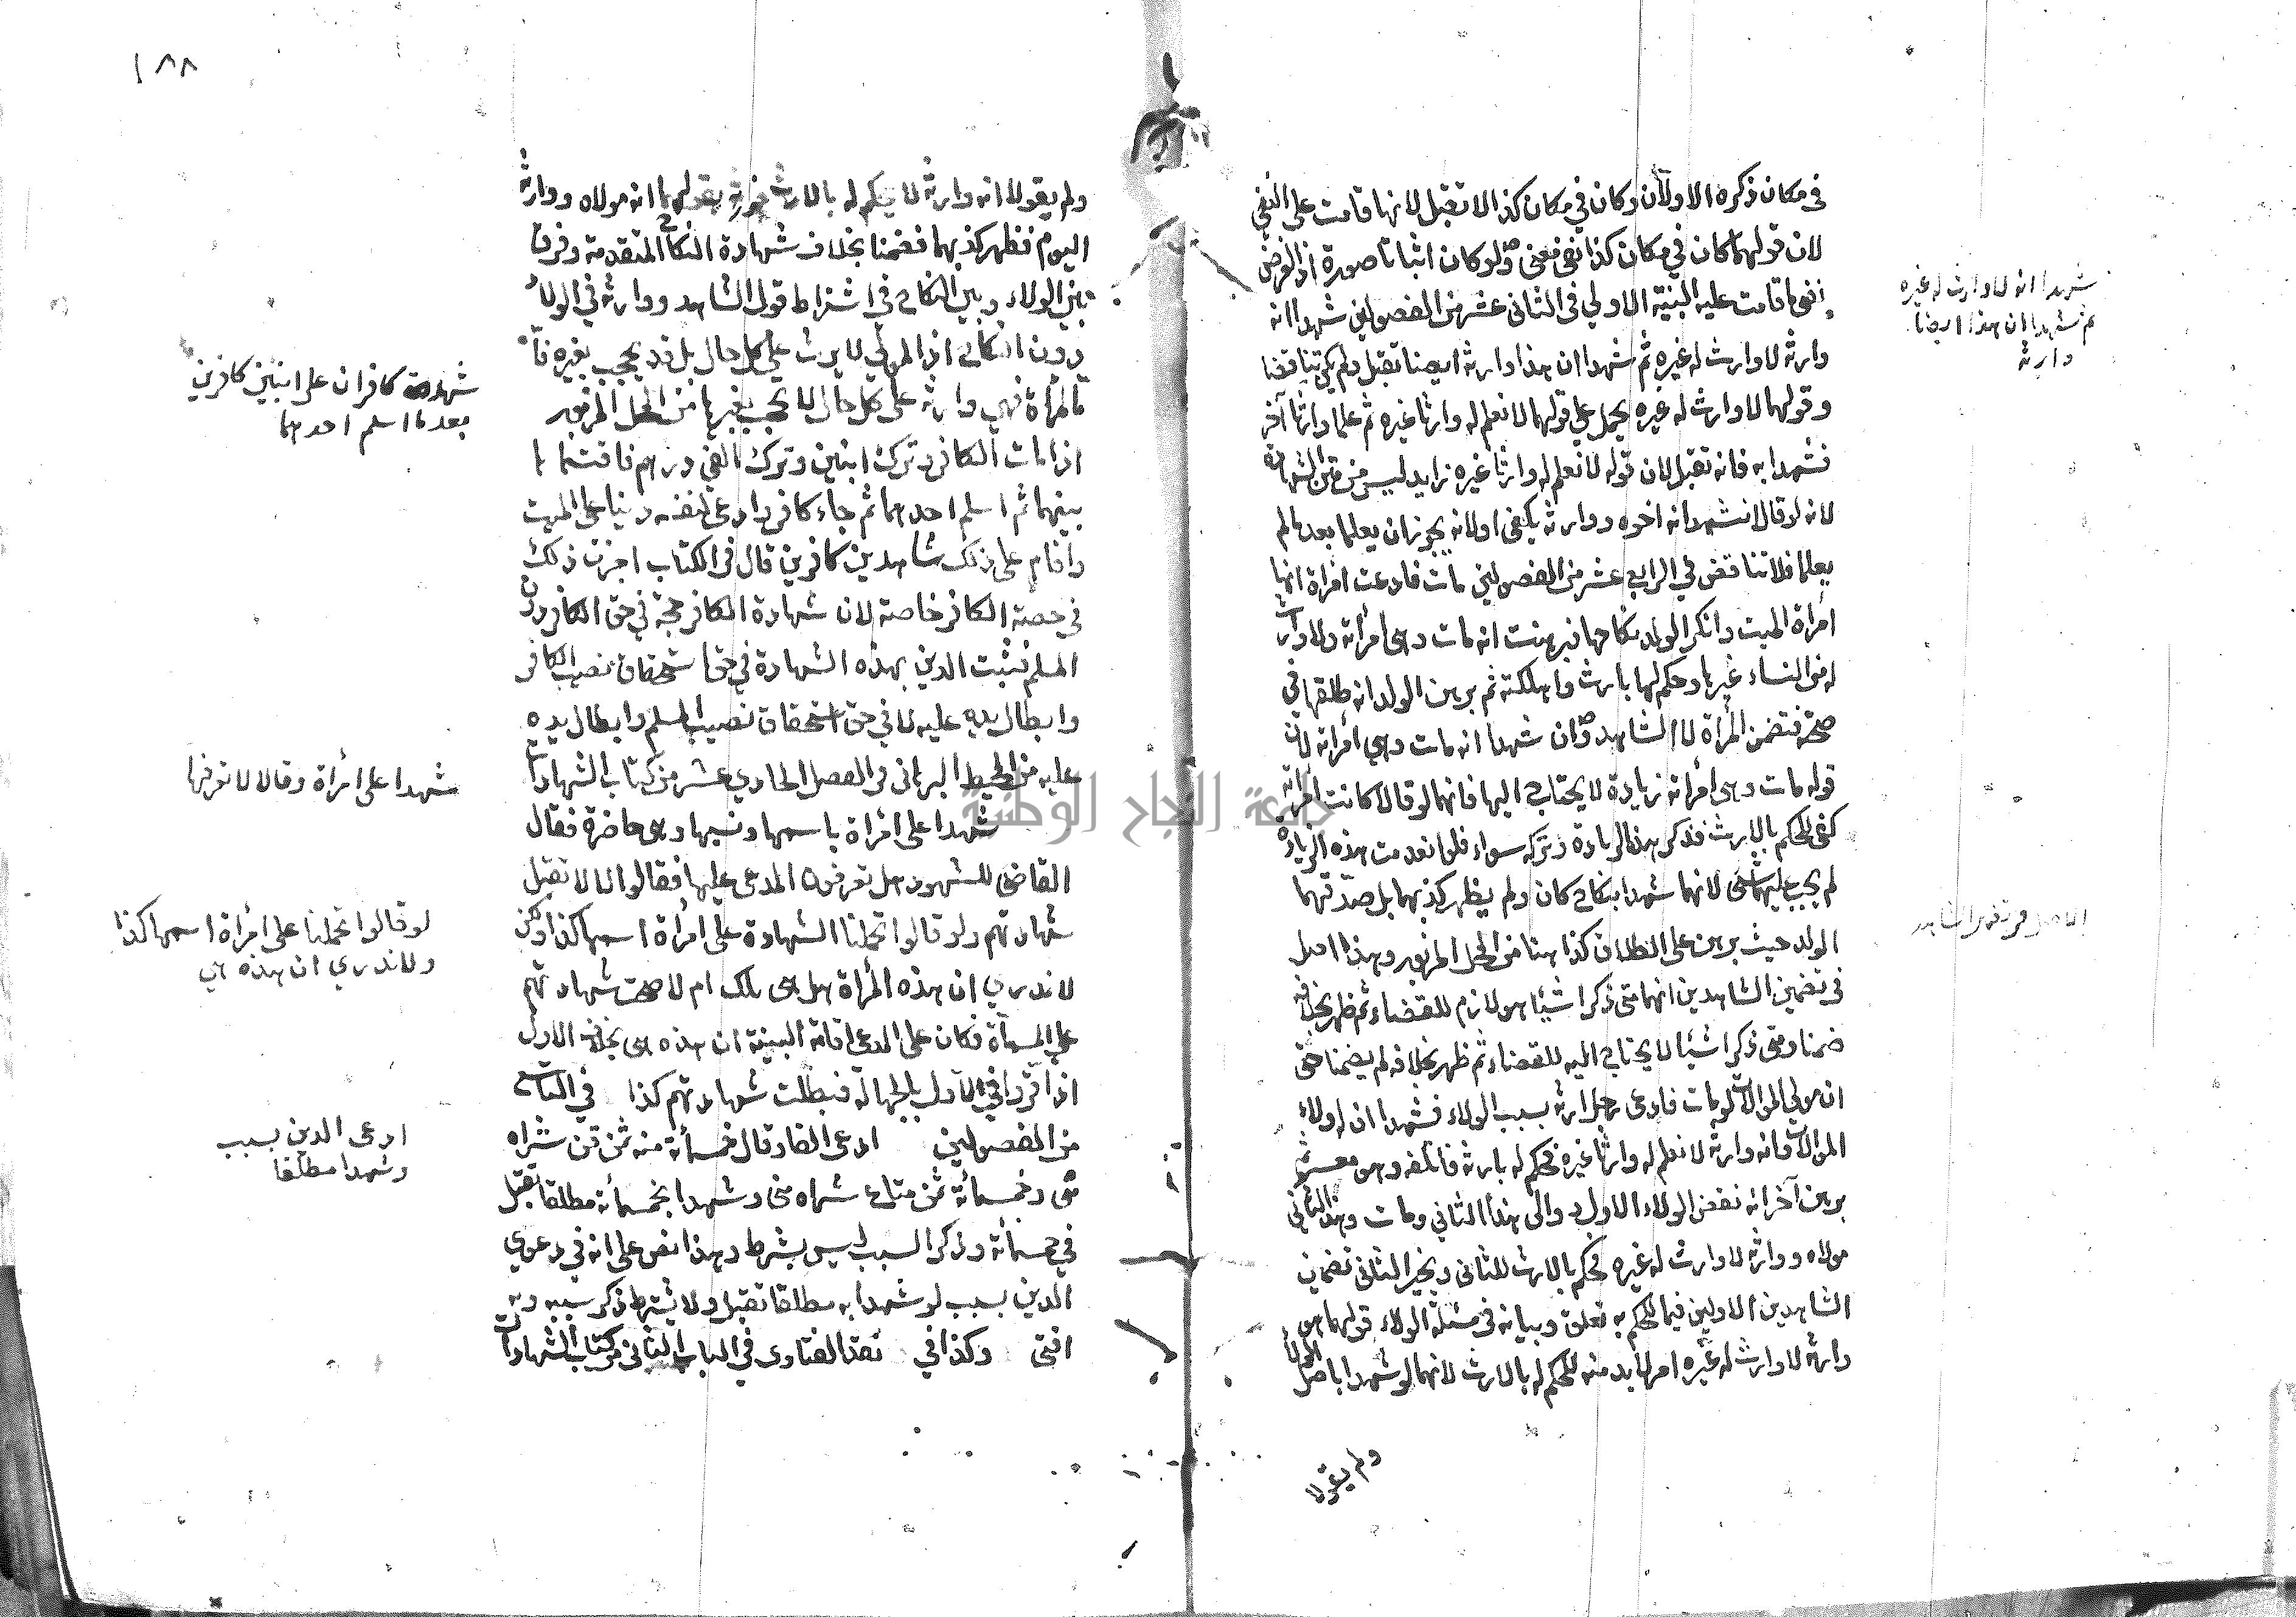 في مكان ذكره الاولان وكان في مكان كذا لا تقبل لانها قامت على النفي
لان قولهما كان في مكان كذا نفي معنى ولو كان اثباتا صورة اذ الغرض
نفي ما قامت عليه البينة الاولي في الثاني عشر من الفصولين شهدا انه
وارثه لا وارث له غيره ثم شهدا ان هذا وارثه ايضا تقبل ولم يكن تناقضا
وقولهما لا وارث له غيره يحمل على قولهما لا نعلم له وارثا غيره ثم علما وارثا آخر
فشهدا به فانه تقبل لان قوله لا نعلم له وارثا غيره زايد ليس من متن الشهادة
لانه لو قالا نشهد انه اخوه ووارثه يكفي اولانه يجوز ان يعلما بعد ما لم
يعلما فلا تناقض في الرابع عشر من الفصولين مات فادعت امراة انها
امرأة الميت وانكر الولد نكاحها فبرهنت انه مات وهى امرأته ولا وارث
له من النساء غيرها وحكم لها بارث واهلكته ثم برهن الولد انه طلقها في
صحته فتضمن المرأة لا الشاهد وان شهدا انه مات وهي امرأته لان
قوله مات وهى امرأته زيادة لا يحتاج اليها فانهما لو قالا كانت امرأته
كفى للحكم بالارث فذكر هذه الزيادة وتركه سواء فلو انعدمت هذه الزيادة
لم يجب عليهما شئ لانهما شهدا بنكاح كان ولم يظهر كذبهما بل صدقهما
الولد حيث برهن على الطلاق كذا هنا من المحل المزبور وهذا اصل
في تضمين الشاهدين انهما متى ذكرا شيئا هو لازم للقضاء ثم ظهر بخلافه
ضمنا ومتى ذكرا شيئا لا يحتاج اليه للقضاء ثم ظهر بخلافه لم يضمنا حتى
ان مولي الموالات لو مات فادعى رجل ارثه بسبب الولاء فشهدا ان له ولاء
الموالات وانه وارثه لا نعلم له وارثا غيره فحكم له بارثه فاتلفه وهو معسر ثم
برهن آخر انه نقض الولاء الاول و والى هذا الثاني ومات وهذا الثاني
مولاه ووارثه لا وارث له غيره فحكم بالارث للثاني ويخير الثاني تضمن
الشاهدين الاولين فيما للحكم به تعلق وبيانه في مسئلة الولاء قولهما هو
وارثه لا وارث له غيره امر لا بد منه للحكم له بالارث لانهما لو شهدا باصل الولاء
ولم يقولا
شهدا انه لا وارث له غيره
ثم شهدا ان هذا ايضا
وارثه
الاصل في تضمين الشاهد
١٨٨
ولم يقولا انه وارثه لا يحكم له بالارث بقولهما انه مولاه ووارثه
اليوم فظهر كذبهما فضمنا بخلاف شهادة النكاح المتقدمة وفرق
بين الولاء وبين النكاح في اشتراط قول الشاهد ووارثه في الولاء
دون النكاح اذ المولى لا يرث على كل حال بل قد يحجب بغيره فاما
المرأة فهي وارثه على كل حال لا يحجب بغيرها من المحل المزبور
اذا مات الكافر وترك ابنين وترك الفي درهم فاقتسما ما
بينهما ثم اسلم احدهما ثم جاء كافر وادعى لنفسه دينا على الميت
واقام على ذلك شاهدين كافرين قال في الكتاب اجزت ذلك
في حصة الكافر خاصة لان شهادة الكافر حجة في حق الكافر دون
المسلم فثبت الدين بهذه الشهادة في حق استحقاق نصيب الكافر
وابطال يده عليه لا في حق استحقاق نصيب المسلم وابطال يده
عليه من المحيط البرهاني في الفصل الحادي عشر من كتاب الشهادات
شهدا على امرأة باسمها ونسبها وهى حاضرة فقال
القاضي للشهود هل تعرفون المدعى عليها فقالوا لا لا تقبل
شهادتهم ولو قالوا تحملنا الشهادة على امرأة اسمها كذا ولكن
لا ندري ان هذه المرأة هل هى تلك ام لا صحت شهادتهم
على المسماة فكان على المدعى اقامة البينة ان هذه هى بخلاف الاول
اذ اقروا في الاول بالجهالة فبطلت شهادتهم كذا في التاسع
من الفصولين ادعى الفا وقال خمسمأئة منه ثمن قن شراه
منى وخمسمأئة ثمن متاع شراه منى وشهدا بخمسمأئة مطلقا تقبل
في خمسمأئة وذكر السبب ليس بشرط وهذا نص على انه في دعوي
الدين بسبب لو شهدا به مطلقا تقبل ولا يشترط ذكر سببه وبه
افتى وكذا في نقد الفتاوى في الباب الثاني من كتاب الشهادات
شهادة كافران على ابنين كافرين
بعد ما اسلم احدهما
شهدا على امرأة وقالا لا نعرفها
لو قالوا تحملنا على امرأة اسمها كذا
ولا ندري ان هذه هي
ادعى الدين بسبب
وشهدا مطلقا
جامعة النجاح الوطنية